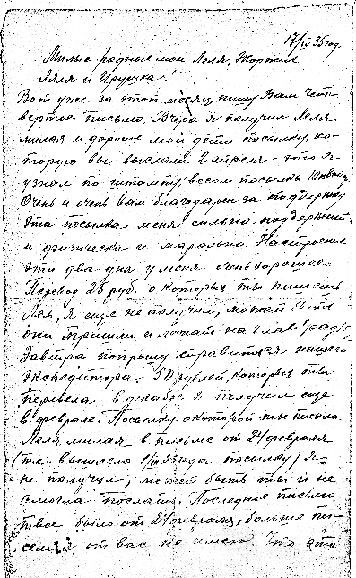 17/IV 35 год.
Милые родные мои Леля, Жоржик
Ляля и Ирушка!
Вот уже за этот месяц пишу Вам чет-
вертое письмо. Вчера я получил Леля
милая и дорогие мои дети посылку ко-
торую вы выслали 2 апреля - это я
узнал по штампу, весом посылка
Очень и очень вам благодарен за поддержку
эта посылка меня сильно поддержит
и физически и морально. Настроение
эти два дня у меня очень хорошее.
Перевод 25 руб. о которых ты пишешь
Леля, я еще не получил, может быть
они пришли и лежат на
завтра попрошу справиться нашего
экспедитора. 50 рублей, которые ты
перевела в я получил еще
в феврале. Посылку о которой ты писала
Леля милая в письме от 24 февраля
(т.е. выслать посылку) я
не получил, может быть ты и не
смогла послать. Последнее письмо
твое было от 24 февраля, больше пи-
сем я от вас не имею. Что это